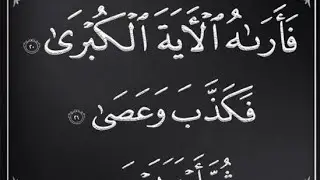 فَأَرَىٰهُ ٱلْأَيَةَ ٱلْكُبْرَىٰ ٢٠
فَكَذَّبَ وَعَصَىٰ ٢١